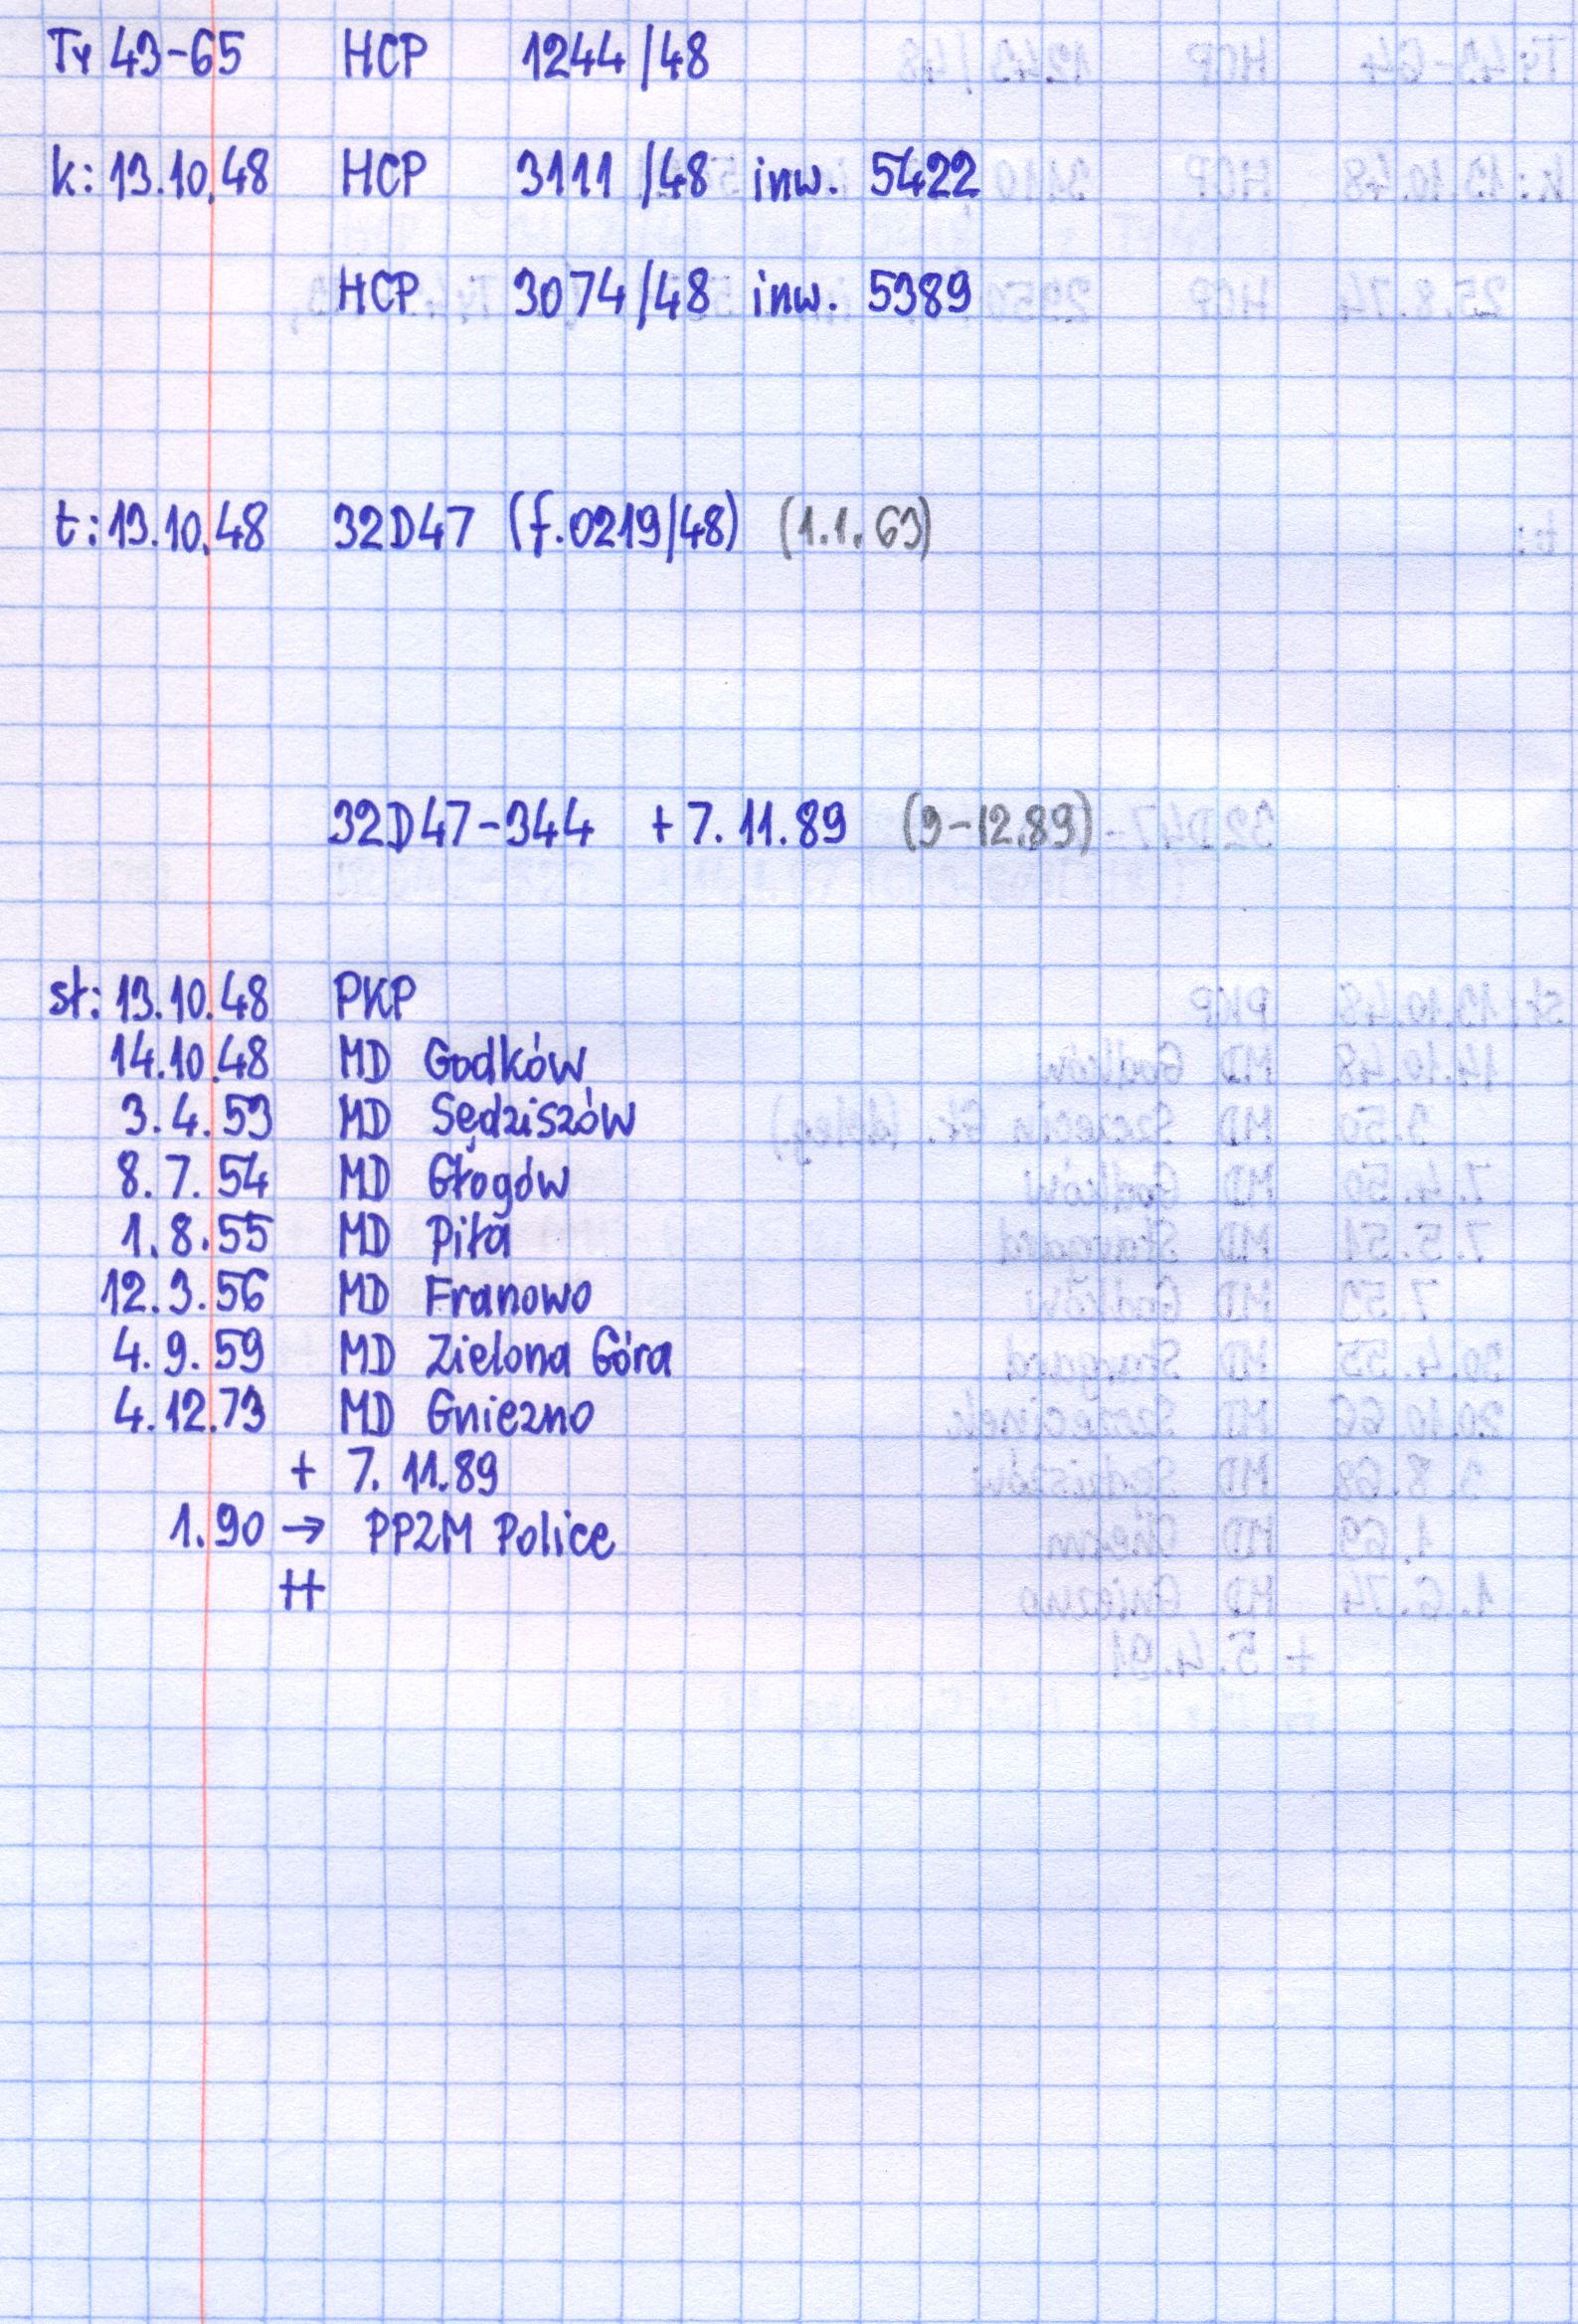 Ty 43-65 HCP 1244/48
k: 13.10.48 HCP 3111/48 inw. 5422
HCP 3074/48 inw. 5389
t: 13.10.48 32D47 (f.0219/48) (1.1.63)
32D47-344 + 7.11.89 (9-12.89)
st: 13.10.48 PKP
14.10.48 MD Godków
3.4.53 MD Sędziszów
8.7.54 MD Głogów
1.8.55 MD Piła
12.3.56 MD Franowo
4.9.59 MD Zielona Góra
4.12.73 MD Gniezno
+ 7.11.89
1.90 → PPZM Police
++